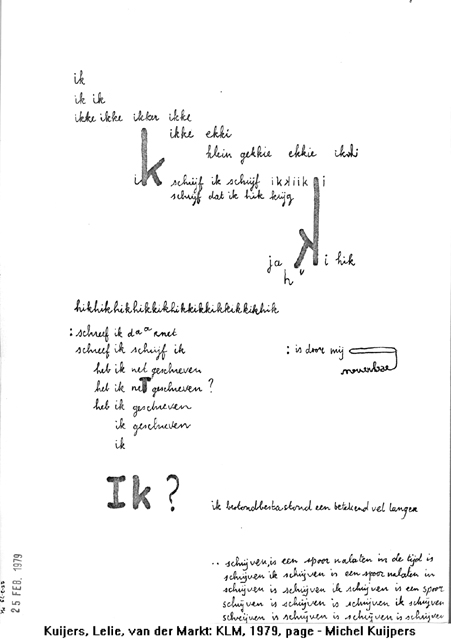 ik
ik ik
ikke ikke ikker ikke
ikke ekki
klein gekkie ekkie
ik schrijf ik schrijf ikkiik i
schrijf dat ik hik krijg
ja h k i hik
hikhikhikhikkikhikkikkikkikkikhik
: schreef ik daar net
schreef ik schrijf ik : is door mij
heb ik net geschreven
heb ik neT geschreven ?
heb ik geschreven
ik geschreven
ik
Ik ?
ik een betekend vel langer
.. schrijven, is een spoor nalaten in de tijd is
schrijven ik schrijven is een spoor nalaten in
schrijven is schrijven ik schrijven is een spoor
schrijven is schrijven is schrijven ik schrijven
schrijven is schrijven is schrijven is schrijven
25 FEB. 1979
Kuijers, Lelie, van der Markt: KLM, 1979, page - Michel Kuijpers